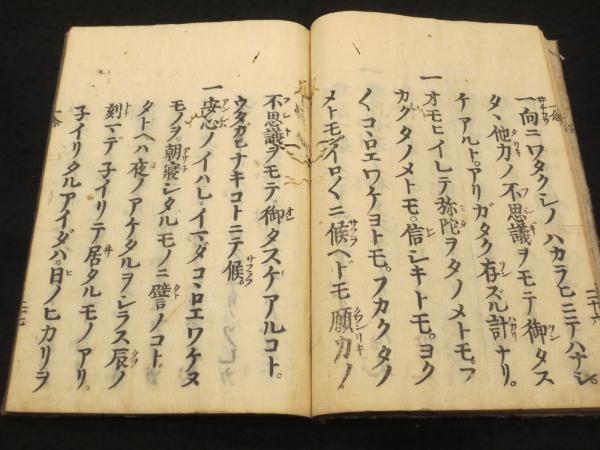 一向ニワタクシノハカラヒニテハナシ。
タヽ他力ノ不思議ヲモテ御タス
ケアルト。アリガタク存ズル計ナリ。
一 オモヒイレテ弥陀ヲタノメトモ。フ
カクタノメトモ。信シキトモ。ヨク
〱コヽロエワケヨトモ。フカクタノ
メトモ。イロ〱ニ候ヘドモ。願力ノ
不思議ヲモテ御タスケアルコト。
ウタガヒナキコトニテ候
一 安心ノイハレ。イマダコヽロエワケヌ
モノヲ。朝寝シタルモノニ譬ノコト。
タトヘハ夜ノアケタルヲシラス辰ノ
刻マデ子イリテ居タルモノアリ。
子イリタルアイダハ。日ノヒカリヲ